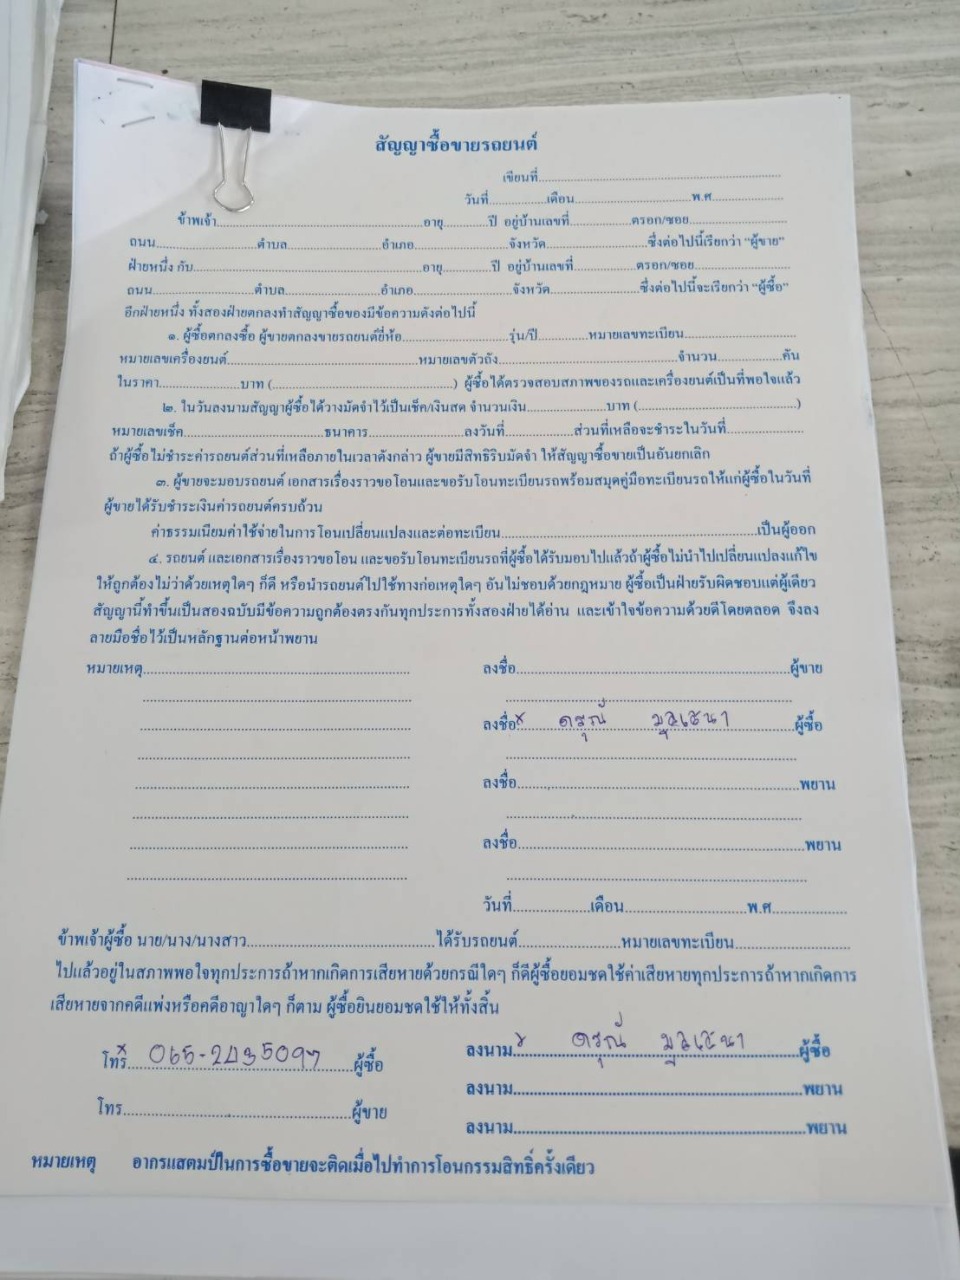 สัญญาซื้อขายรถยนต์
เขียนที่
วันที่ เดือน พ.ศ
ข้าพเจ้า อายุ ปี อยู่บ้านเลขที่ ตรอก/ซอย
ถนน ตำบล อำเภอ จังหวัด ซึ่งต่อไปนี้เรียกว่า "ผู้ขาย"
ฝ่ายหนึ่ง กับ อายุ ปี อยู่บ้านเลขที่ ตรอก/ซอย
ถนน ตำบล อำเภอ จังหวัด ซึ่งต่อไปนี้จะเรียกว่า "ผู้ซื้อ"
อีกฝ่ายหนึ่ง ทั้งสองฝ่ายตกลงทำสัญญาซื้อของมีข้อความดังต่อไปนี้
๑. ผู้ซื้อตกลงซื้อ ผู้ขายตกลงขายรถยนต์ยี่ห้อ รุ่น/ปี หมายเลขทะเบียน
หมายเลขเครื่องยนต์ หมายเลขตัวถัง จำนวน คัน
ในราคา บาท ( ) ผู้ซื้อได้ตรวจสอบสภาพของรถและเครื่องยนต์เป็นที่พอใจแล้ว
๒. ในวันลงนามสัญญาผู้ซื้อได้วางมัดจำไว้เป็นเช็ค/เงินสด จำนวนเงิน บาท ( )
หมายเลขเช็ค ธนาคาร ลงวันที่ ส่วนที่เหลือจะชำระในวันที่
ถ้าผู้ซื้อไม่ชำระค่ารถยนต์ส่วนที่เหลือภายในเวลาดังกล่าว ผู้ขายมีสิทธิริบมัดจำ ให้สัญญาซื้อขายเป็นอันยกเลิก
๓. ผู้ขายจะมอบรถยนต์ เอกสารเรื่องราวขอโอนและขอรับโอนทะเบียนรถพร้อมสมุดคู่มือทะเบียนรถให้แก่ผู้ซื้อในวันที่
ผู้ขายได้รับชำระเงินค่ารถยนต์ครบถ้วน
ค่าธรรมเนียมค่าใช้จ่ายในการโอนเปลี่ยนแปลงและต่อทะเบียน เป็นผู้ออก
๔. รถยนต์ และเอกสารเรื่องราวขอโอน และขอรับโอนทะเบียนรถที่ผู้ซื้อได้รับมอบไปแล้วถ้าผู้ซื้อไม่นำไปเปลี่ยนแปลงแก้ไข
ให้ถูกต้องไม่ว่าด้วยเหตุใดๆ ก็ดี หรือนำรถยนต์ไปใช้ทางก่อเหตุใดๆ อันไม่ชอบด้วยกฎหมาย ผู้ซื้อเป็นฝ่ายรับผิดชอบแต่ผู้เดียว
สัญญานี้ทำขึ้นเป็นสองฉบับมีข้อความถูกต้องตรงกันทุกประการทั้งสองฝ่ายได้อ่าน และเข้าใจข้อความด้วยดีโดยตลอด จึงลง
ลายมือชื่อไว้เป็นหลักฐานต่อหน้าพยาน
หมายเหตุ ลงชื่อ ผู้ขาย
ลงชื่อ x ดรุณี มูลเสนา ผู้ซื้อ
ลงชื่อ พยาน
ลงชื่อ พยาน
วันที่ เดือน พ.ศ
ข้าพเจ้าผู้ซื้อ นาย/นาง/นางสาว ได้รับรถยนต์ หมายเลขทะเบียน
ไปแล้วอยู่ในสภาพพอใจทุกประการถ้าหากเกิดการเสียหายด้วยกรณีใดๆ ก็ดีผู้ซื้อยอมชดใช้ค่าเสียหายทุกประการถ้าหากเกิดการ
เสียหายจากคดีแพ่งหรือคดีอาญาใดๆ ก็ตาม ผู้ซื้อยินยอมชดใช้ให้ทั้งสิ้น
โทร x 065-2435097 ผู้ซื้อ ลงนาม x ดรุณี มูลเสนา ผู้ซื้อ
ลงนาม พยาน
โทร ผู้ขาย
ลงนาม พยาน
หมายเหตุ อากรแสตมป์ในการซื้อขายจะติดเมื่อไปทำการโอนกรรมสิทธิ์ครั้งเดียว